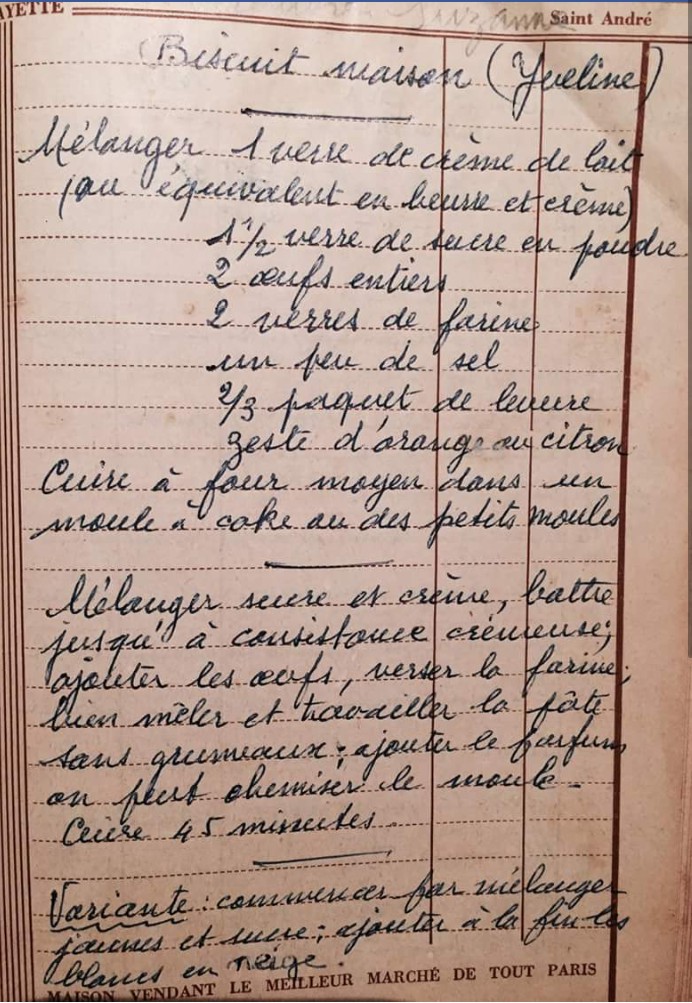 AYETTE Saint André
Biscuit maison (Yveline)
Mélanger 1 verre de crème de lait
(ou équivalent en beurre et crème)
1 1/2 verre de sucre en poudre
2 œufs entiers
2 verres de farine
un peu de sel
2/3 paquet de levure
zeste d'orange ou citron
Cuire à four moyen dans un
moule à cake ou des petits moules
Mélanger sucre et crème, battre
jusqu'à consistance crémeuse;
ajouter les œufs, verser la farine;
bien mêler et travailler la pâte
sans grumeaux; ajouter le parfum
on peut chemiser le moule -
Cuire 45 minutes.
Variante: commencer par mélanger
jaunes et sucre; ajouter à la fin les
blancs en neige.
MAISON VENDANT LE MEILLEUR MARCHÉ DE TOUT PARIS